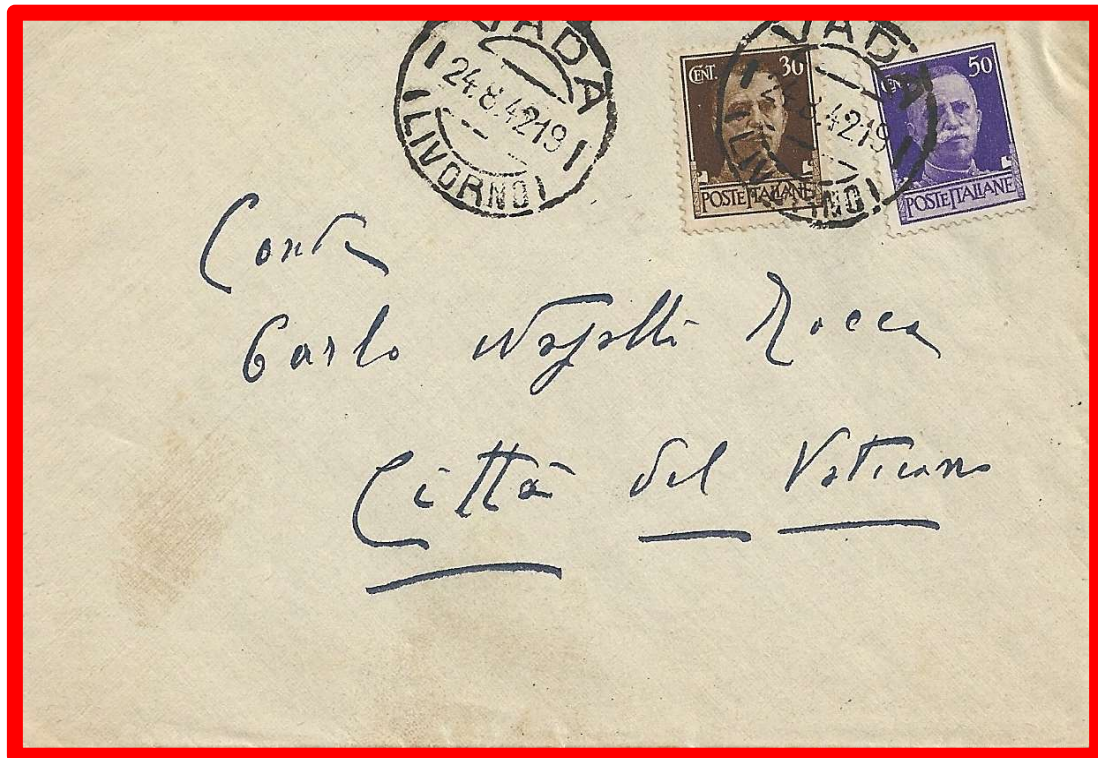 VADA
24.8.42 19
(LIVORNO)
CENT. 30
POSTE ITALIANE
VADA
24.8.42 19
(LIVORNO)
CENT. 50
POSTE ITALIANE
Conte
Carlo Napolli Rocca
Città del Vaticano